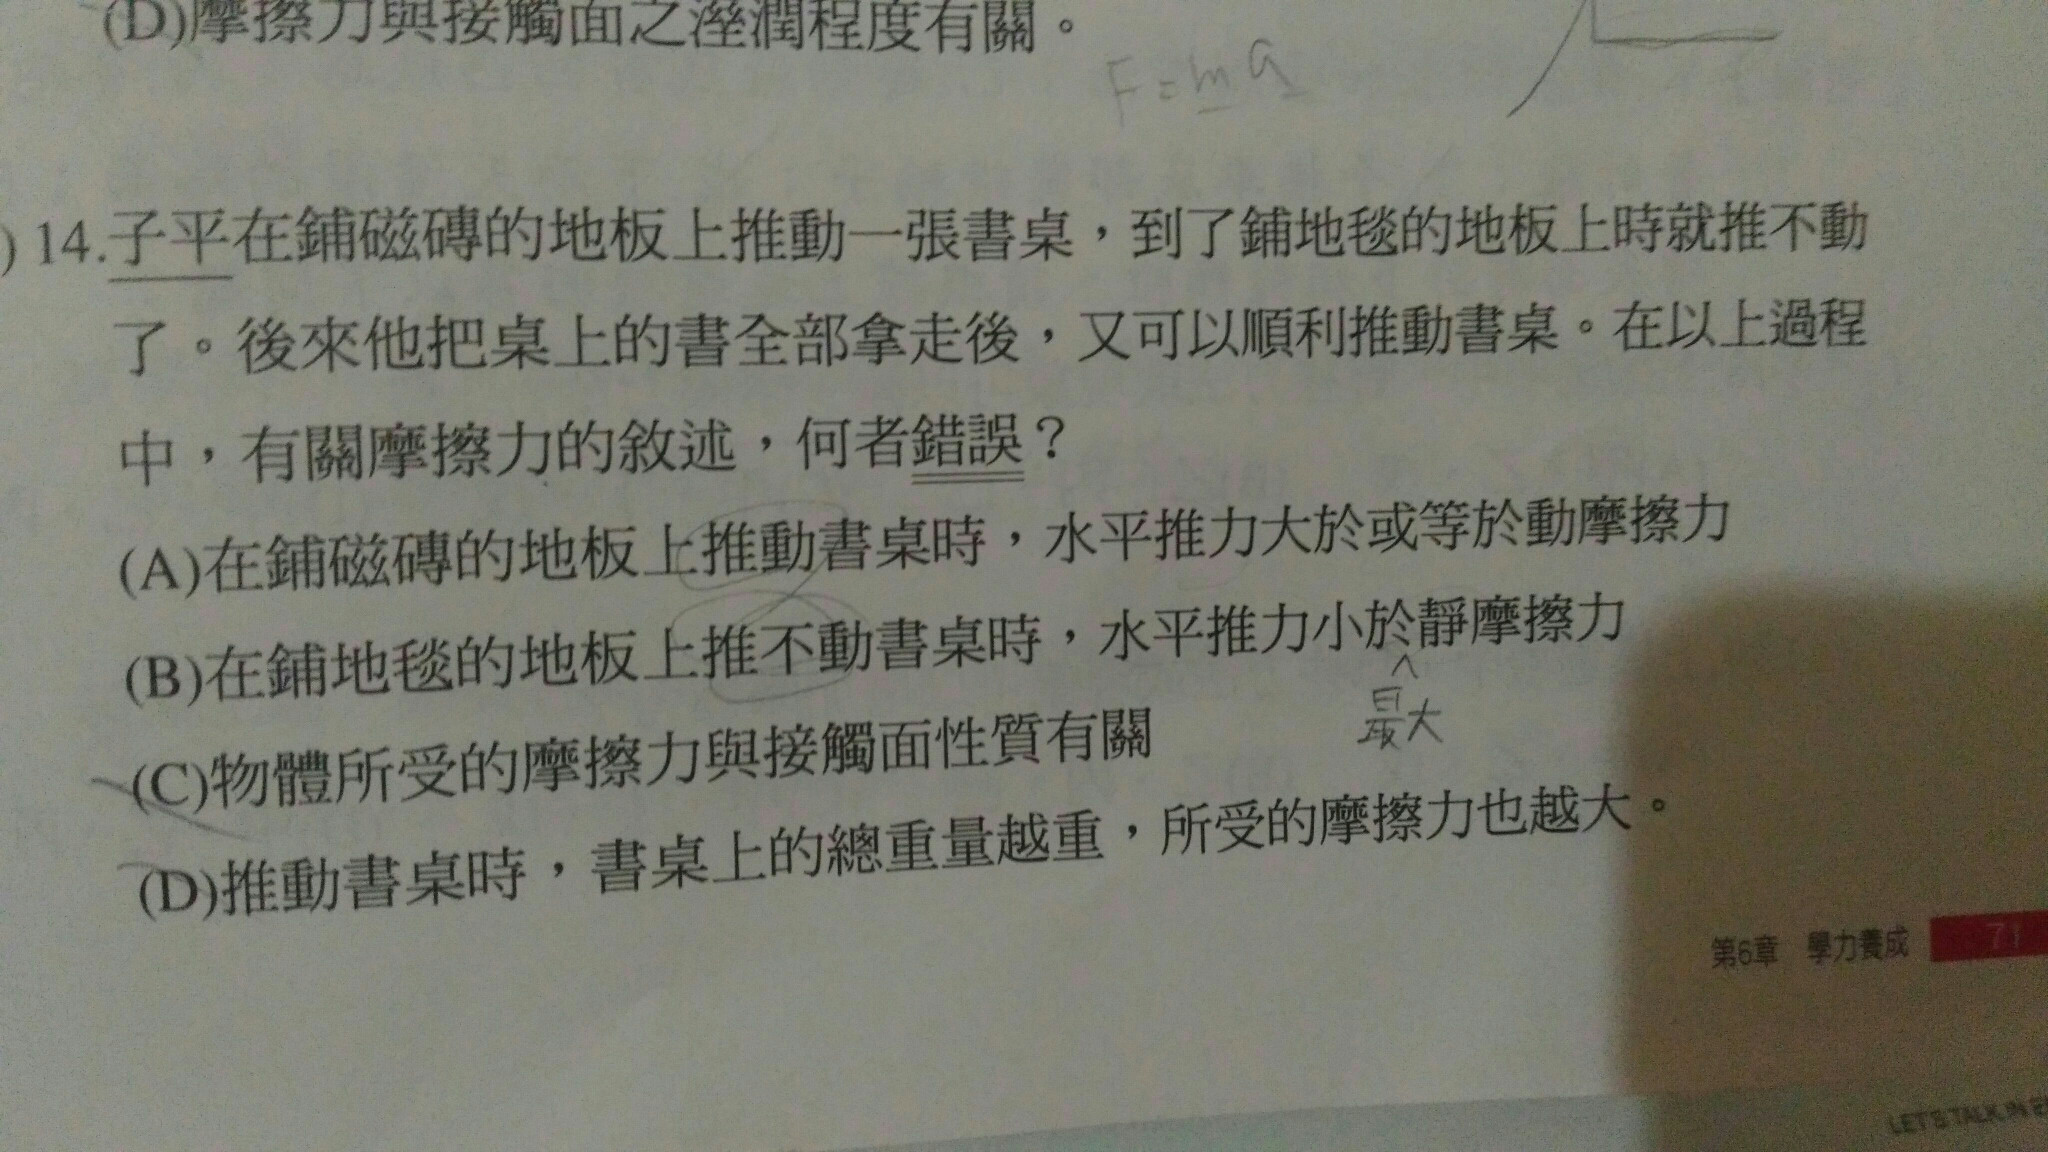 (D)摩擦力與接觸面之溼潤程度有關。
F=ma
) 14.子平在鋪磁磚的地板上推動一張書桌，到了鋪地毯的地板上時就推不動
了。後來他把桌上的書全部拿走後，又可以順利推動書桌。在以上過程
中，有關摩擦力的敘述，何者錯誤？
(A)在鋪磁磚的地板上推動書桌時，水平推力大於或等於動摩擦力
(B)在鋪地毯的地板上推不動書桌時，水平推力小於靜摩擦力
最大
(C)物體所受的摩擦力與接觸面性質有關
(D)推動書桌時，書桌上的總重量越重，所受的摩擦力也越大。
第6章 學力養成 71
LET'S TALK IN